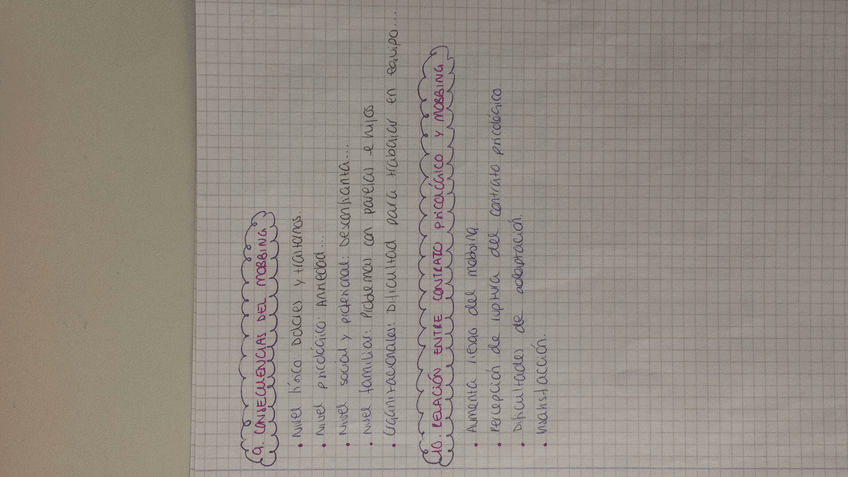 9. CONSECUENCIAS DEL MOBBING
• Nivel físico: Dolores y trastornos.
• Nivel psicológico: Ansiedad...
• Nivel social y profesional: Desconfianza...
• Nivel familiar: Problemas con parejas e hijos
• Organizacionales: Dificultad para trabajar en equipo...
10. RELACIÓN ENTRE CONTRATO PSICOLÓGICO Y MOBBING
• Aumenta riesgo del mobbing
• Percepción de ruptura del contrato psicológico
• Dificultades de adaptación.
• Insatisfacción.